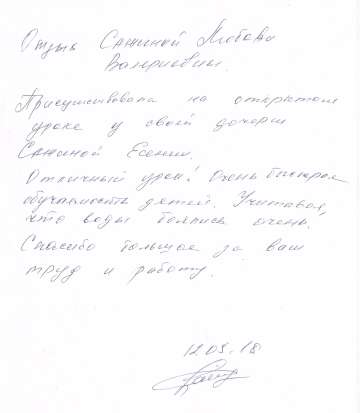 Отзыв Сажиной Любови
Валериевны.
Присутствовала на открытом
уроке у своей дочери
Сажиной Есении.
Отличный урок! Очень быстрая
обучаемость детей. Учитывая,
что воды боялись очень.
Спасибо большое за ваш
труд и работу.
12.05.18